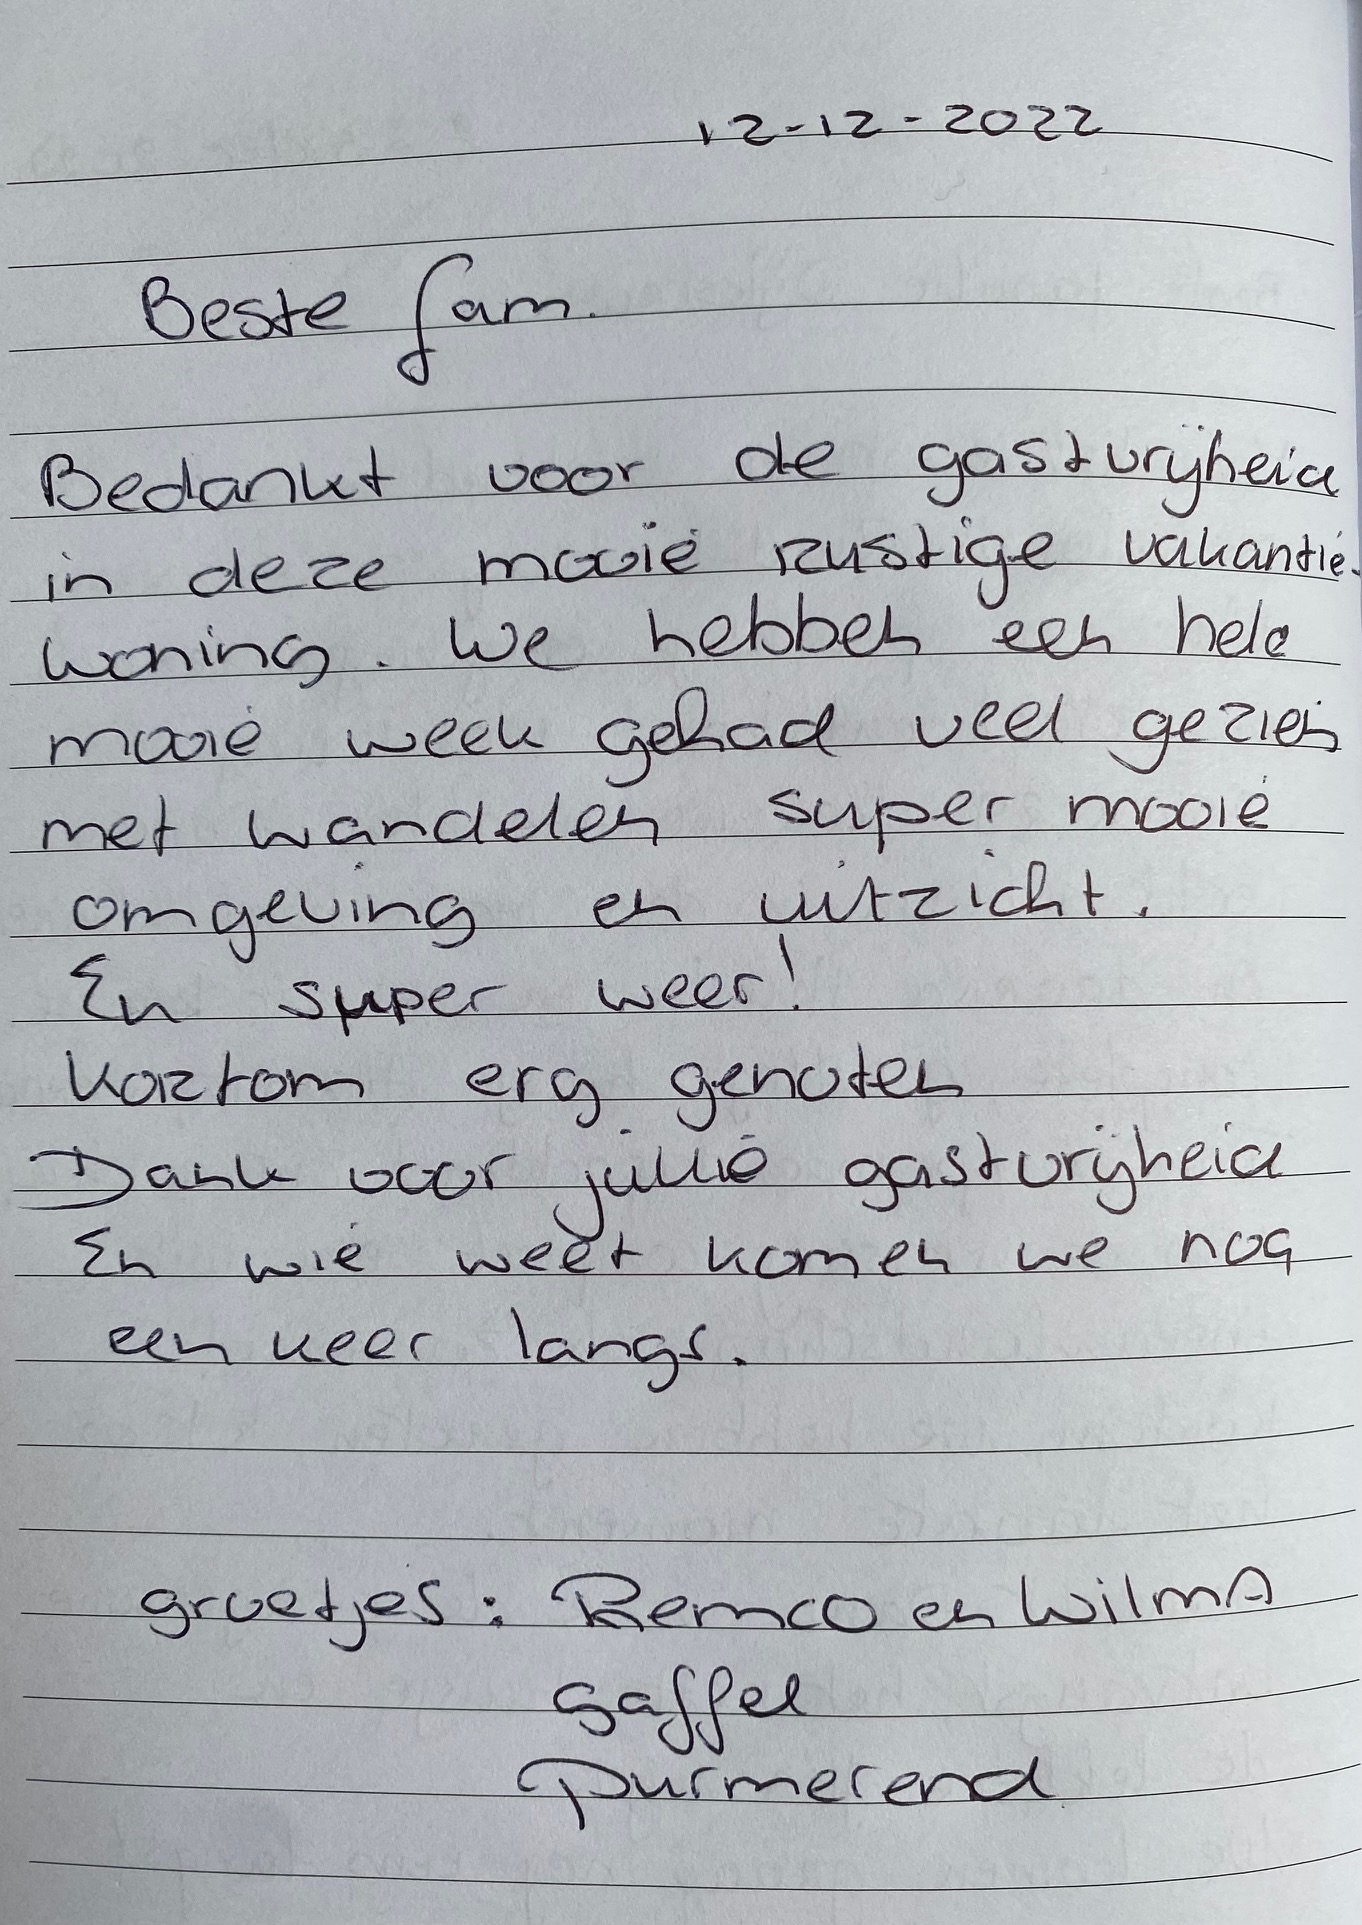 12-12-2022
Beste fam.
Bedankt voor de gastvrijheid
in deze mooie rustige vakantie-
woning. We hebben een hele
mooie week gehad veel gezien
met wandelen super mooie
omgeving en uitzicht.
En super weer!
Kortom erg genoten
Dank voor jullie gastvrijheid
En wie weet komen we nog
een keer langs.
groetjes: Remco en Wilma
Gaffel
Purmerend